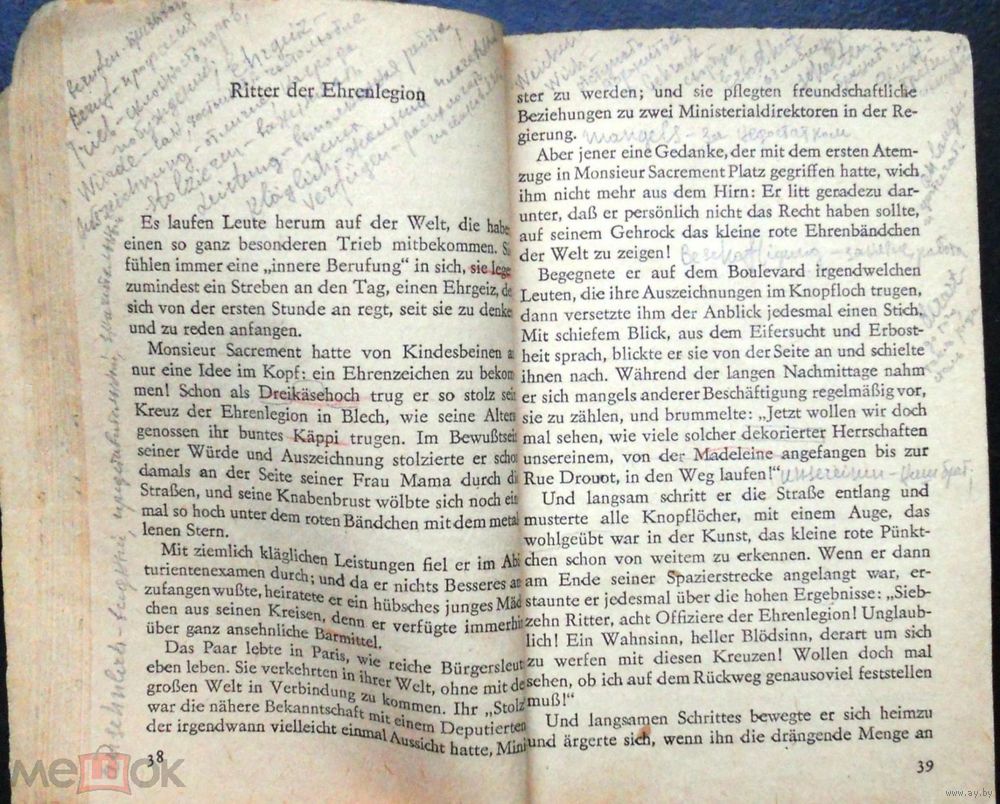 Ritter der Ehrenlegion
Es laufen Leute herum auf der Welt, die habe
einen so ganz besonderen Trieb mitbekommen. Si
fühlen immer eine „innere Berufung“ in sich, sie lege
zumindest ein Streben an den Tag, einen Ehrgeiz, de
sich von der ersten Stunde an regt, seit sie zu denke
und zu reden anfangen.
Monsieur Sacrement hatte von Kindesbeinen a
nur eine Idee im Kopf: ein Ehrenzeichen zu bekom
men! Schon als Dreikäsehoch trug er so stolz sei
Kreuz der Ehrenlegion in Blech, wie seine Alters
genossen ihr buntes Käppi trugen. Im Bewußtsei
seiner Würde und Auszeichnung stolzierte er scho
damals an der Seite seiner Frau Mama durch di
Straßen, und seine Knabenbrust wölbte sich noch ein
mal so hoch unter dem roten Bändchen mit dem metal
lenen Stern.
Mit ziemlich kläglichen Leistungen fiel er im Abi
turientenexamen durch; und da er nichts Besseres an
zufangen wußte, heiratete er ein hübsches junges Mäd
chen aus seinen Kreisen, denn er verfügte immerhin
über ganz ansehnliche Barmittel.
Das Paar lebte in Paris, wie reiche Bürgersleut
eben leben. Sie verkehrten in ihrer Welt, ohne mit de
großen Welt in Verbindung zu kommen. Ihr „Stolz
war die nähere Bekanntschaft mit einem Deputierten
der irgendwann vielleicht einmal Aussicht hatte, Mini
38
ster zu werden; und sie pflegten freundschaftliche
Beziehungen zu zwei Ministerialdirektoren in der Re-
gierung. mangels - за недостатком
Aber jener eine Gedanke, der mit dem ersten Atem-
zuge in Monsieur Sacrement Platz gegriffen hatte, wich
ihm nicht mehr aus dem Hirn: Er litt geradezu dar-
unter, daß er persönlich nicht das Recht haben sollte,
auf seinem Gehrock das kleine rote Ehrenbändchen
der Welt zu zeigen! Beschäftigung - занятие, работа
Begegnete er auf dem Boulevard irgendwelchen
Leuten, die ihre Auszeichnungen im Knopfloch trugen,
dann versetzte ihm der Anblick jedesmal einen Stich.
Mit schiefem Blick, aus dem Eifersucht und Erbost-
heit sprach, blickte er sie von der Seite an und schielte
ihnen nach. Während der langen Nachmittage nahm
er sich mangels anderer Beschäftigung regelmäßig vor,
sie zu zählen, und brummelte: „Jetzt wollen wir doch
mal sehen, wie viele solcher dekorierter Herrschaften
unsereinem, von der Madeleine angefangen bis zur
Rue Drouot, in den Weg laufen!“ unsereinen - наш брат,
Und langsam schritt er die Straße entlang und
musterte alle Knopflöcher, mit einem Auge, das
wohlgeübt war in der Kunst, das kleine rote Pünkt-
chen schon von weitem zu erkennen. Wenn er dann
am Ende seiner Spazierstrecke angelangt war, er-
staunte er jedesmal über die hohen Ergebnisse: „Sieb-
zehn Ritter, acht Offiziere der Ehrenlegion! Unglaub-
lich! Ein Wahnsinn, heller Blödsinn, derart um sich
zu werfen mit diesen Kreuzen! Wollen doch mal
sehen, ob ich auf dem Rückweg genausoviel feststellen
muß!“
Und langsamen Schrittes bewegte er sich heimzu
und ärgerte sich, wenn ihn die drängende Menge an
39
мешок
www.ay.by